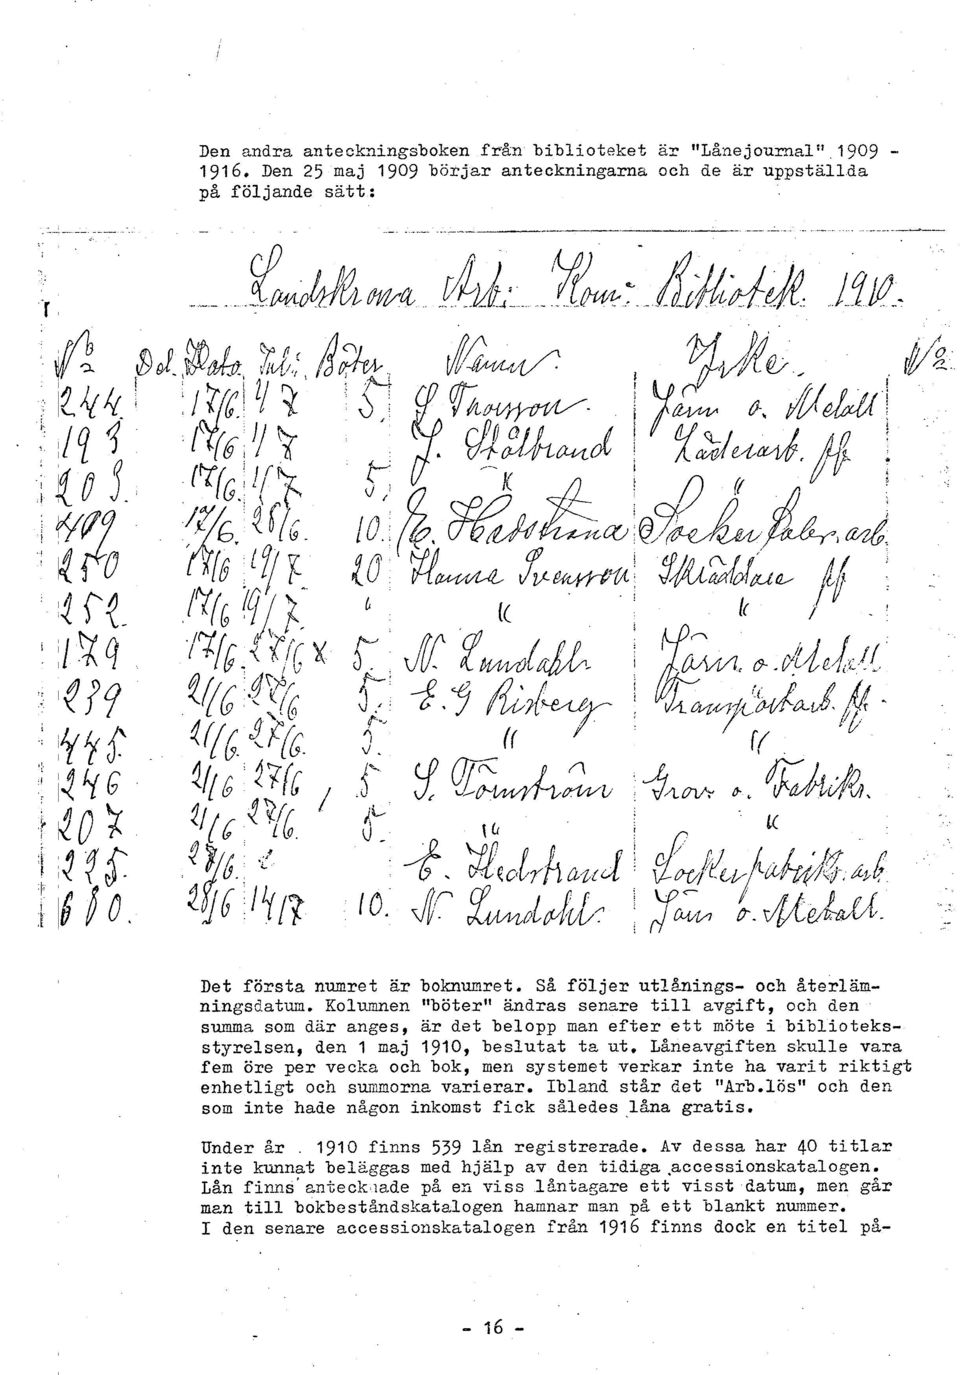 Den andra anteckningsboken från biblioteket är "Lånejournal" 1909 -
1916. Den 25 maj 1909 börjar anteckningarna och de är uppställda
på följande sätt:
Landskrona Arb: Kom: Bibliotek. 1910.
No Del. Dato. Böter Namn. Yrke. No
244 17/6 1/7 5 Thorsson. Järn o. Metall
193 17/6 1/7 J. Stålbrand Läderarb. ff
203. 17/6 1/7 5 " "
409 17/6. 28/6. 10. E. Hadstrand Socker fabr. arb.
250 17/6 19/7 20 Hanna Svensson Skräddare ff
252. 17/6 19/7. " " "
179 17/6. 27/6 x 5. N. Lundahl Järn o. Metall
239 21/6 27/6 5. E. G Risberg Transportarb. ff.
445. 21/6. 27/6. 5. " "
246 21/6 27/6 5 S. Törnström Grov o. Fabriks.
207 21/6 27/6. 5. " "
225. 28/6. E. Hedstrand Sockerfabriks. arb.
680. 28/6 14/7 10. N. Lundahl. Järn o. Metall.
Det första numret är boknumret. Så följer utlånings- och återläm-
ningsdatum. Kolumnen "böter" ändras senare till avgift, och den
summa som där anges, är det belopp man efter ett möte i biblioteks-
styrelsen, den 1 maj 1910, beslutat ta ut. Låneavgiften skulle vara
fem öre per vecka och bok, men systemet verkar inte ha varit riktigt
enhetligt och summorna varierar. Ibland står det "Arb.lös" och den
som inte hade någon inkomst fick således låna gratis.
Under år . 1910 finns 539 lån registrerade. Av dessa har 40 titlar
inte kunnat beläggas med hjälp av den tidiga accessionskatalogen.
Lån finns antecknade på en viss låntagare ett visst datum, men går
man till bokbeståndskatalogen hamnar man på ett blankt nummer.
I den senare accessionskatalogen från 1916 finns dock en titel på-
- 16 -